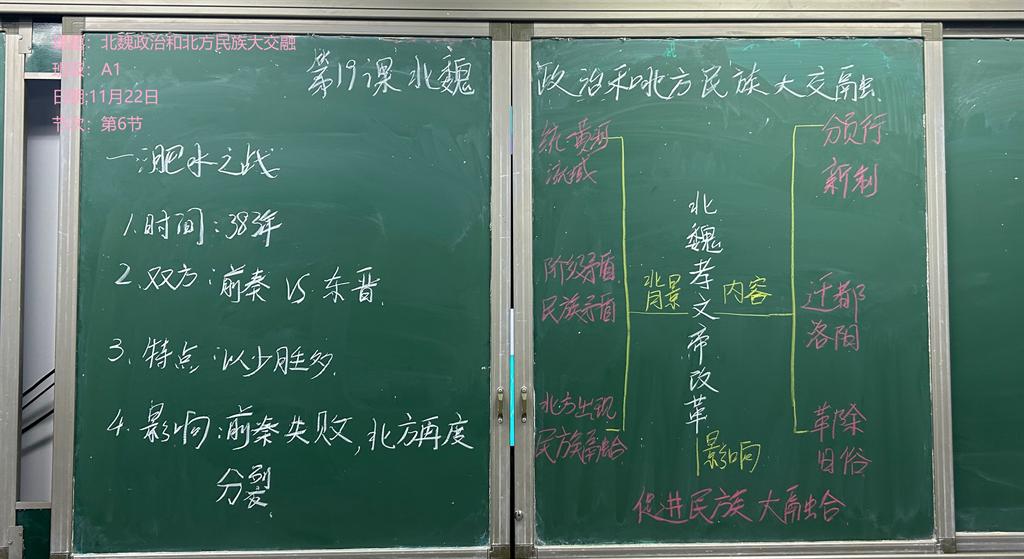 课题：北魏政治和北方民族大交融
班级：A1
日期:11月22日
节次：第6节
第19课 北魏政治和北方民族大交融
一、淝水之战
1.时间:383年
2.双方:前秦 VS 东晋.
3.特点:以少胜多.
4.影响:前秦失败,北方再度
分裂
统一黄河
流域
阶级矛盾
民族矛盾
北方出现
民族融合
背景
北魏孝文帝改革
内容
分员行
新制
迁都
洛阳
革除
旧俗
影响
促进民族大融合